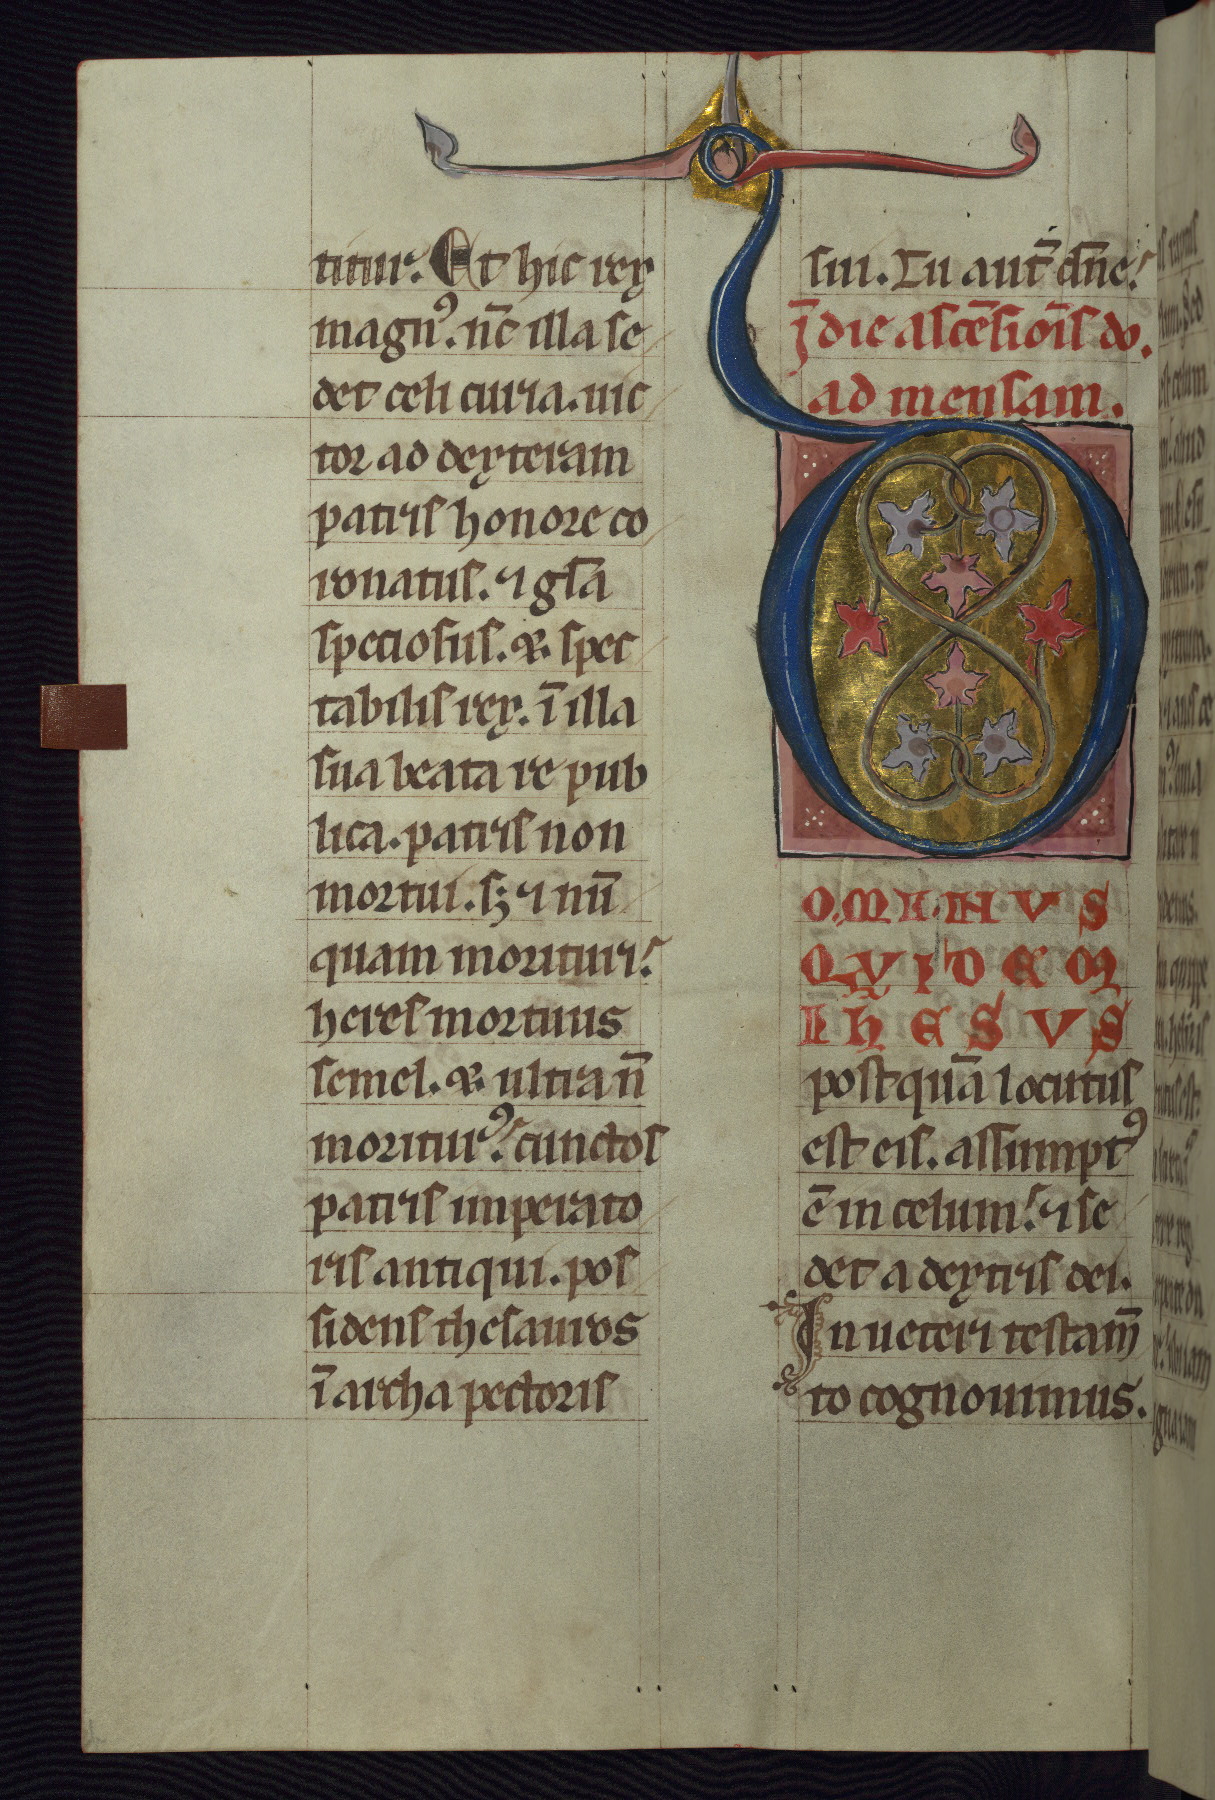 titur. Et hic rex
magnꝰ. nc̄ illa se
det celi curia. uic
tor ad dexteram
patris honore co
ronatus. ⁊ gl̄a
speciosus. & spec
tabilis rex. ī illa
sua beata re pub
lica. patris non
mortui. sꝫ ⁊ nū
quam morituri.
heres mortuus
semel. & ultra n̄
moriturꝰ. cunctos
patris imperato
ris antiqui. pos
sidens thesauros
ī archa pectoris
sui. Tu aut̄ dn̄e.
J̄ die ascēsiōis do.
ad mensam.
DOMINVS
QVIDEM
IHESVS
postquā locutus
est eis. assumptꝰ
ē in celum. ⁊ se
det a dextris dei.
In ueteri testam̄
to cognouimus.